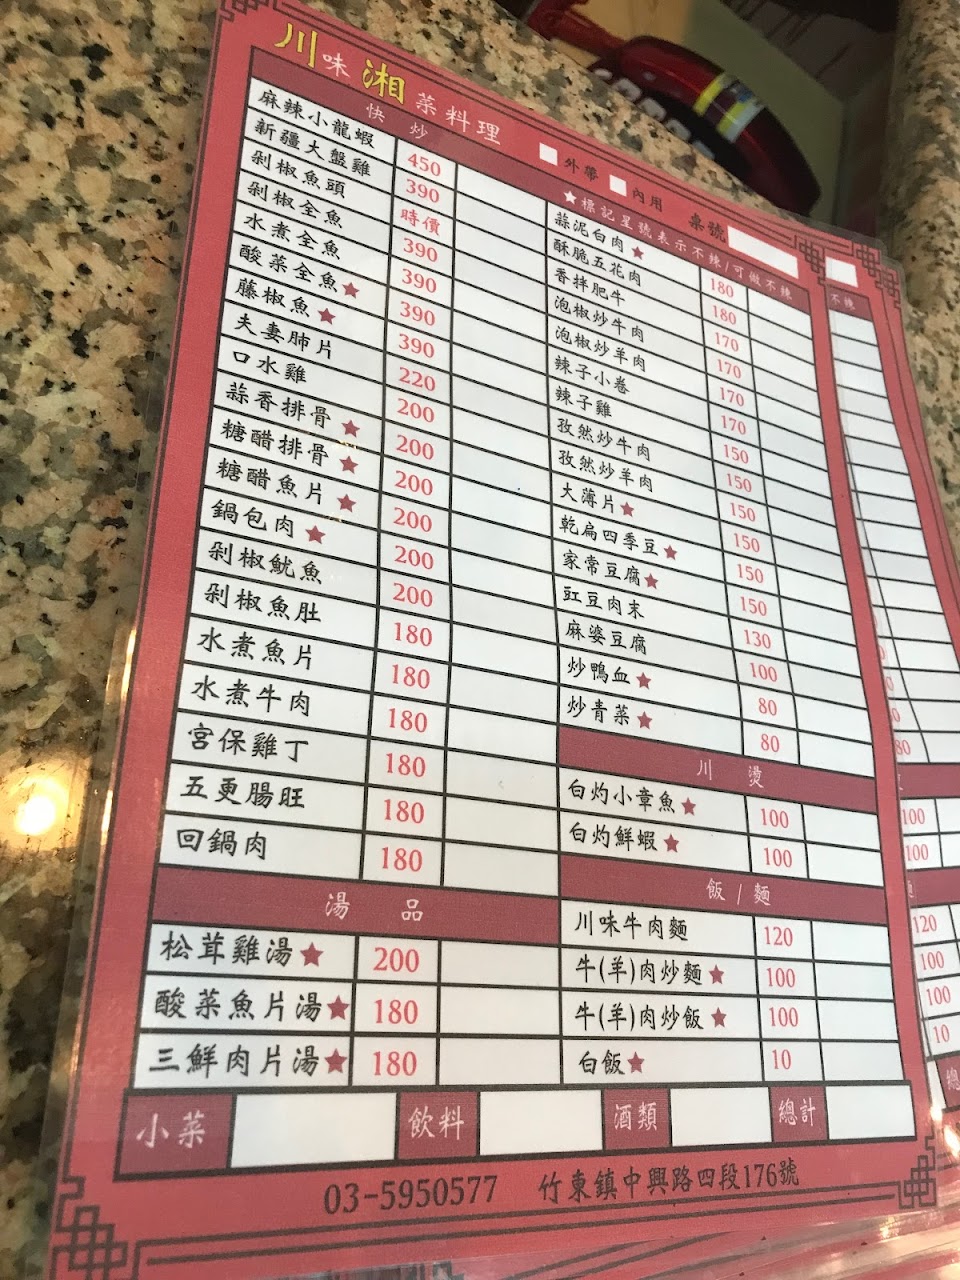 川味湘菜料理
外帶 內用 桌號
快炒
★標記星號表示不辣/可做不辣
麻辣小龍蝦 450
新疆大盤雞 390
剁椒魚頭 時價
剁椒全魚 390
水煮全魚 390
酸菜全魚★ 390
藤椒魚★ 390
夫妻肺片 220
口水雞 200
蒜香排骨★ 200
糖醋排骨★ 200
糖醋魚片★ 200
鍋包肉★ 200
剁椒魷魚 200
剁椒魚肚 180
水煮魚片 180
水煮牛肉 180
宮保雞丁 180
五更腸旺 180
回鍋肉 180
湯品
松茸雞湯★ 200
酸菜魚片湯★ 180
三鮮肉片湯★ 180
蒜泥白肉★ 180
酥脆五花肉 180
香拌肥牛 170
泡椒炒牛肉 170
泡椒炒羊肉 170
辣子小卷 170
辣子雞 150
孜然炒牛肉 150
孜然炒羊肉 150
大薄片★ 150
乾扁四季豆★ 150
家常豆腐★ 150
豇豆肉末 130
麻婆豆腐 100
炒鴨血★ 80
炒青菜★ 80
川燙
白灼小章魚★ 100
白灼鮮蝦★ 100
飯/麵
川味牛肉麵 120
牛(羊)肉炒麵★ 100
牛(羊)肉炒飯★ 100
白飯★ 10
小菜 飲料 酒類 總計
03-5950577 竹東鎮中興路四段176號
不辣
80
100
100
120
100
100
10
總